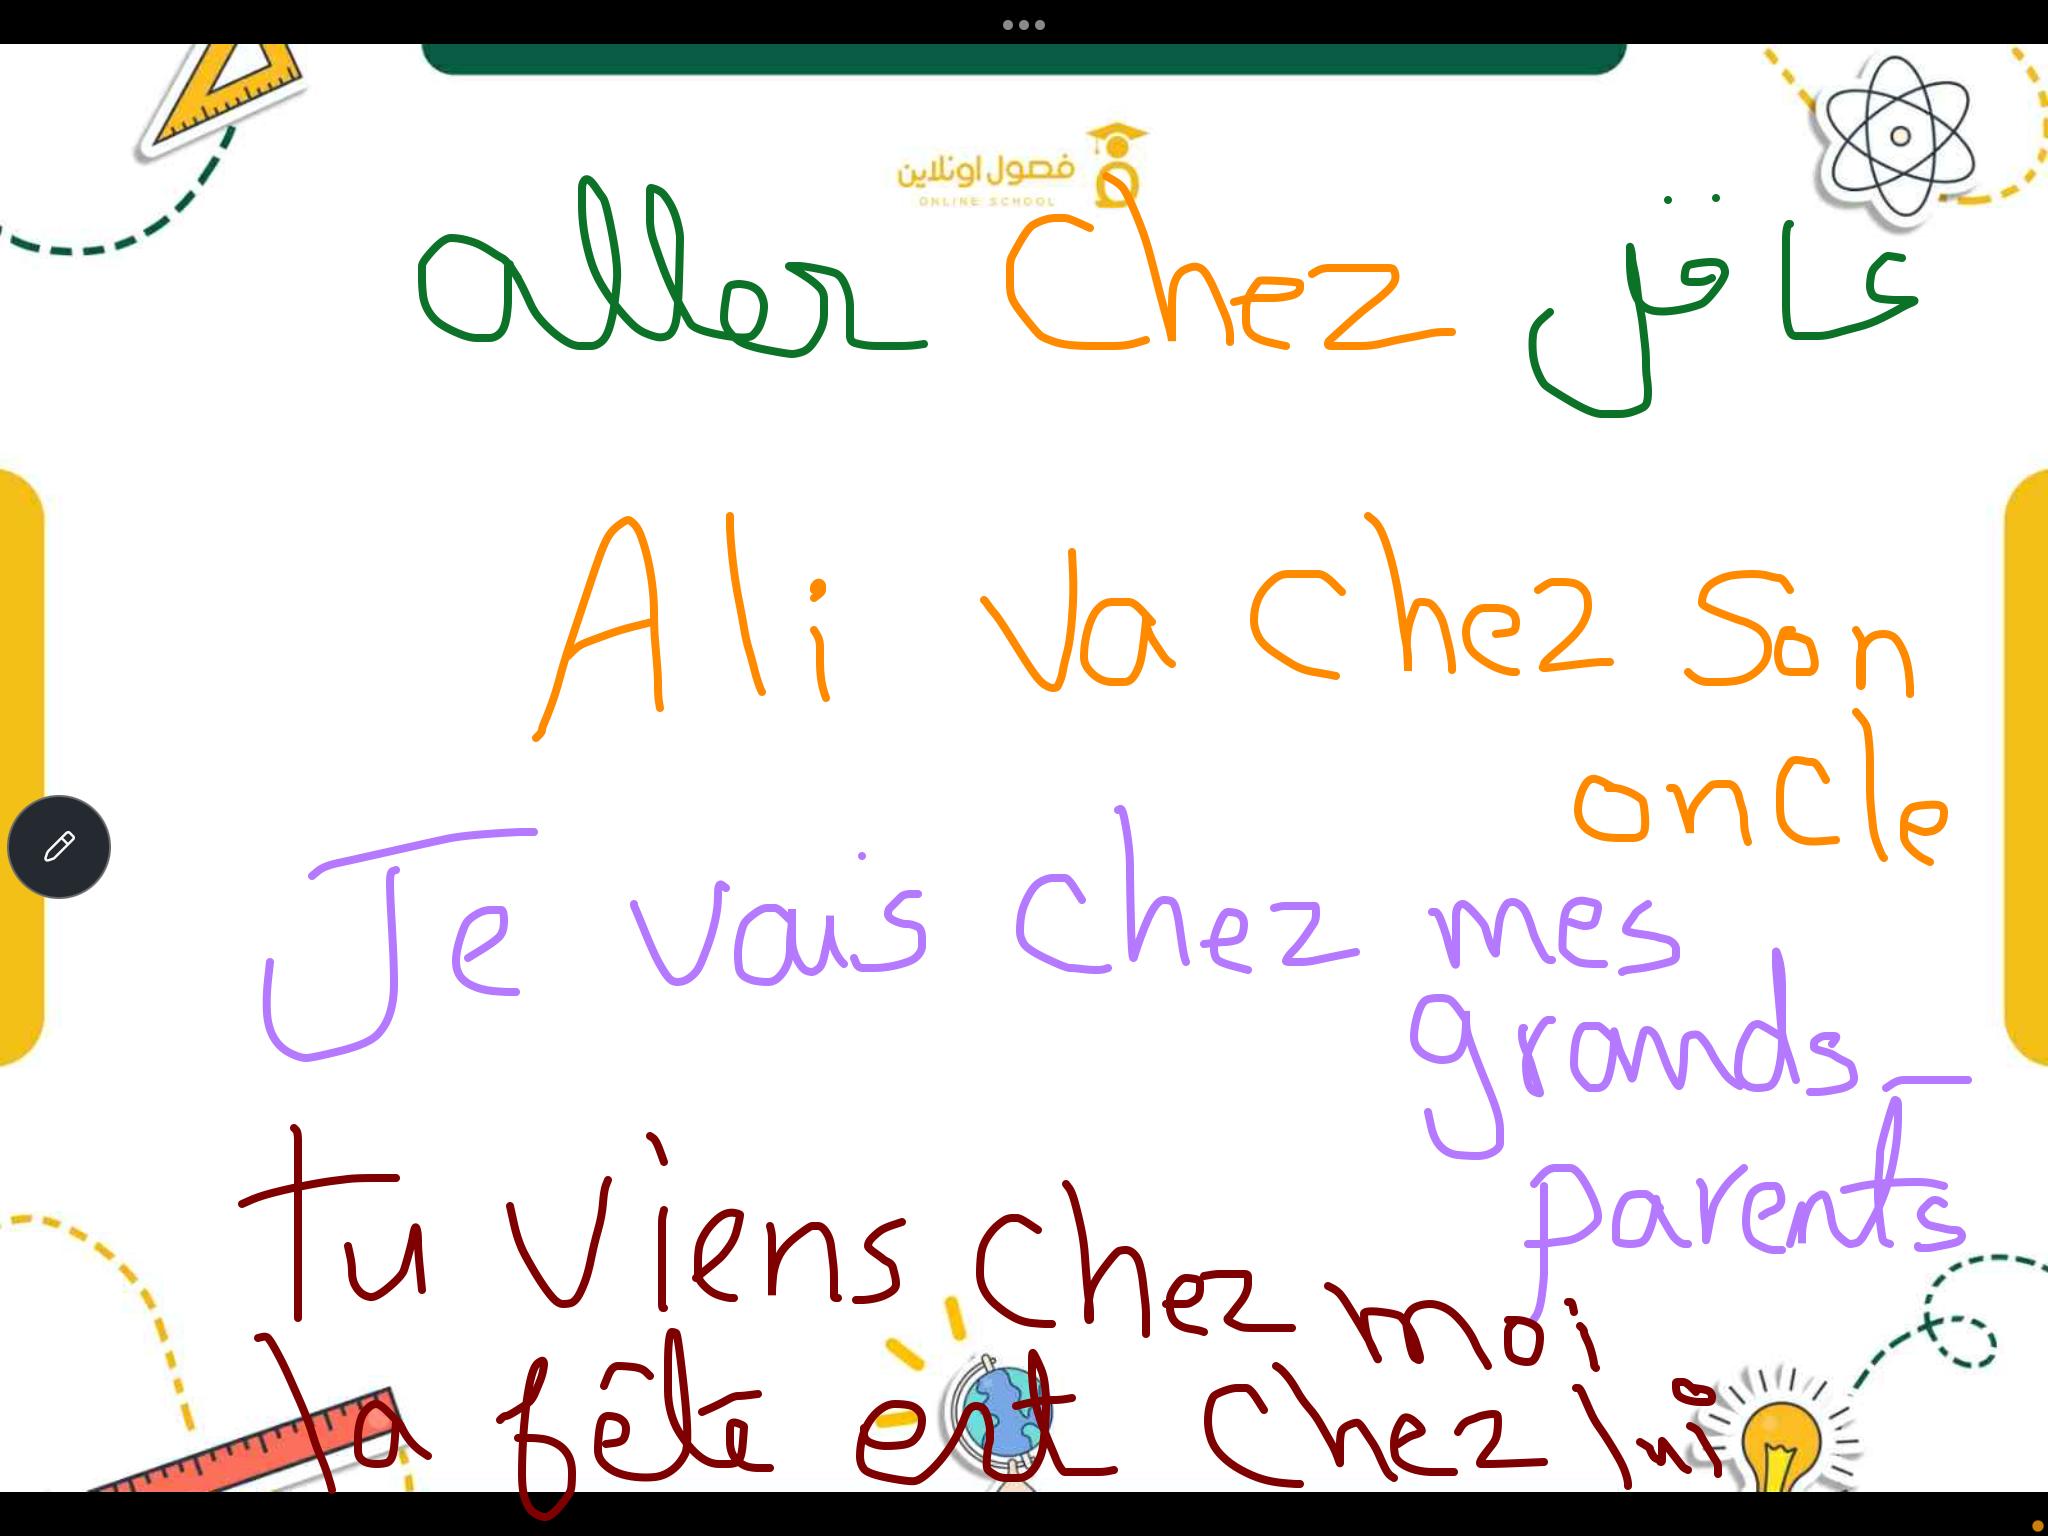 فصول اونلاين
ONLINE SCHOOL
aller chez عاقل
Ali va chez son
oncle
Je vais chez mes
grands-
parents
Tu viens chez moi
la fête est chez lui